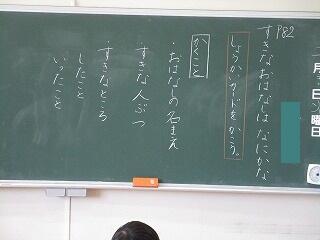 月 日 火曜日
P82
すきなおはなしは なにかな
しょうかいカードをかこう。
かくこと
・おはなしの名まえ
すきな人ぶつ
・すきなところ
したこと
いったこと